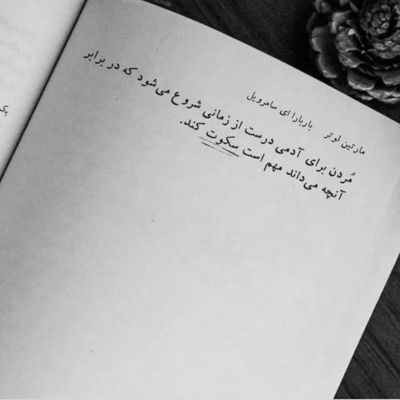 مارتین لوتر باربارا ای سامرویل
مُردن برای آدمی درست از زمانی شروع می‌شود که در برابر
آنچه می‌داند مهم است سکوت کند.